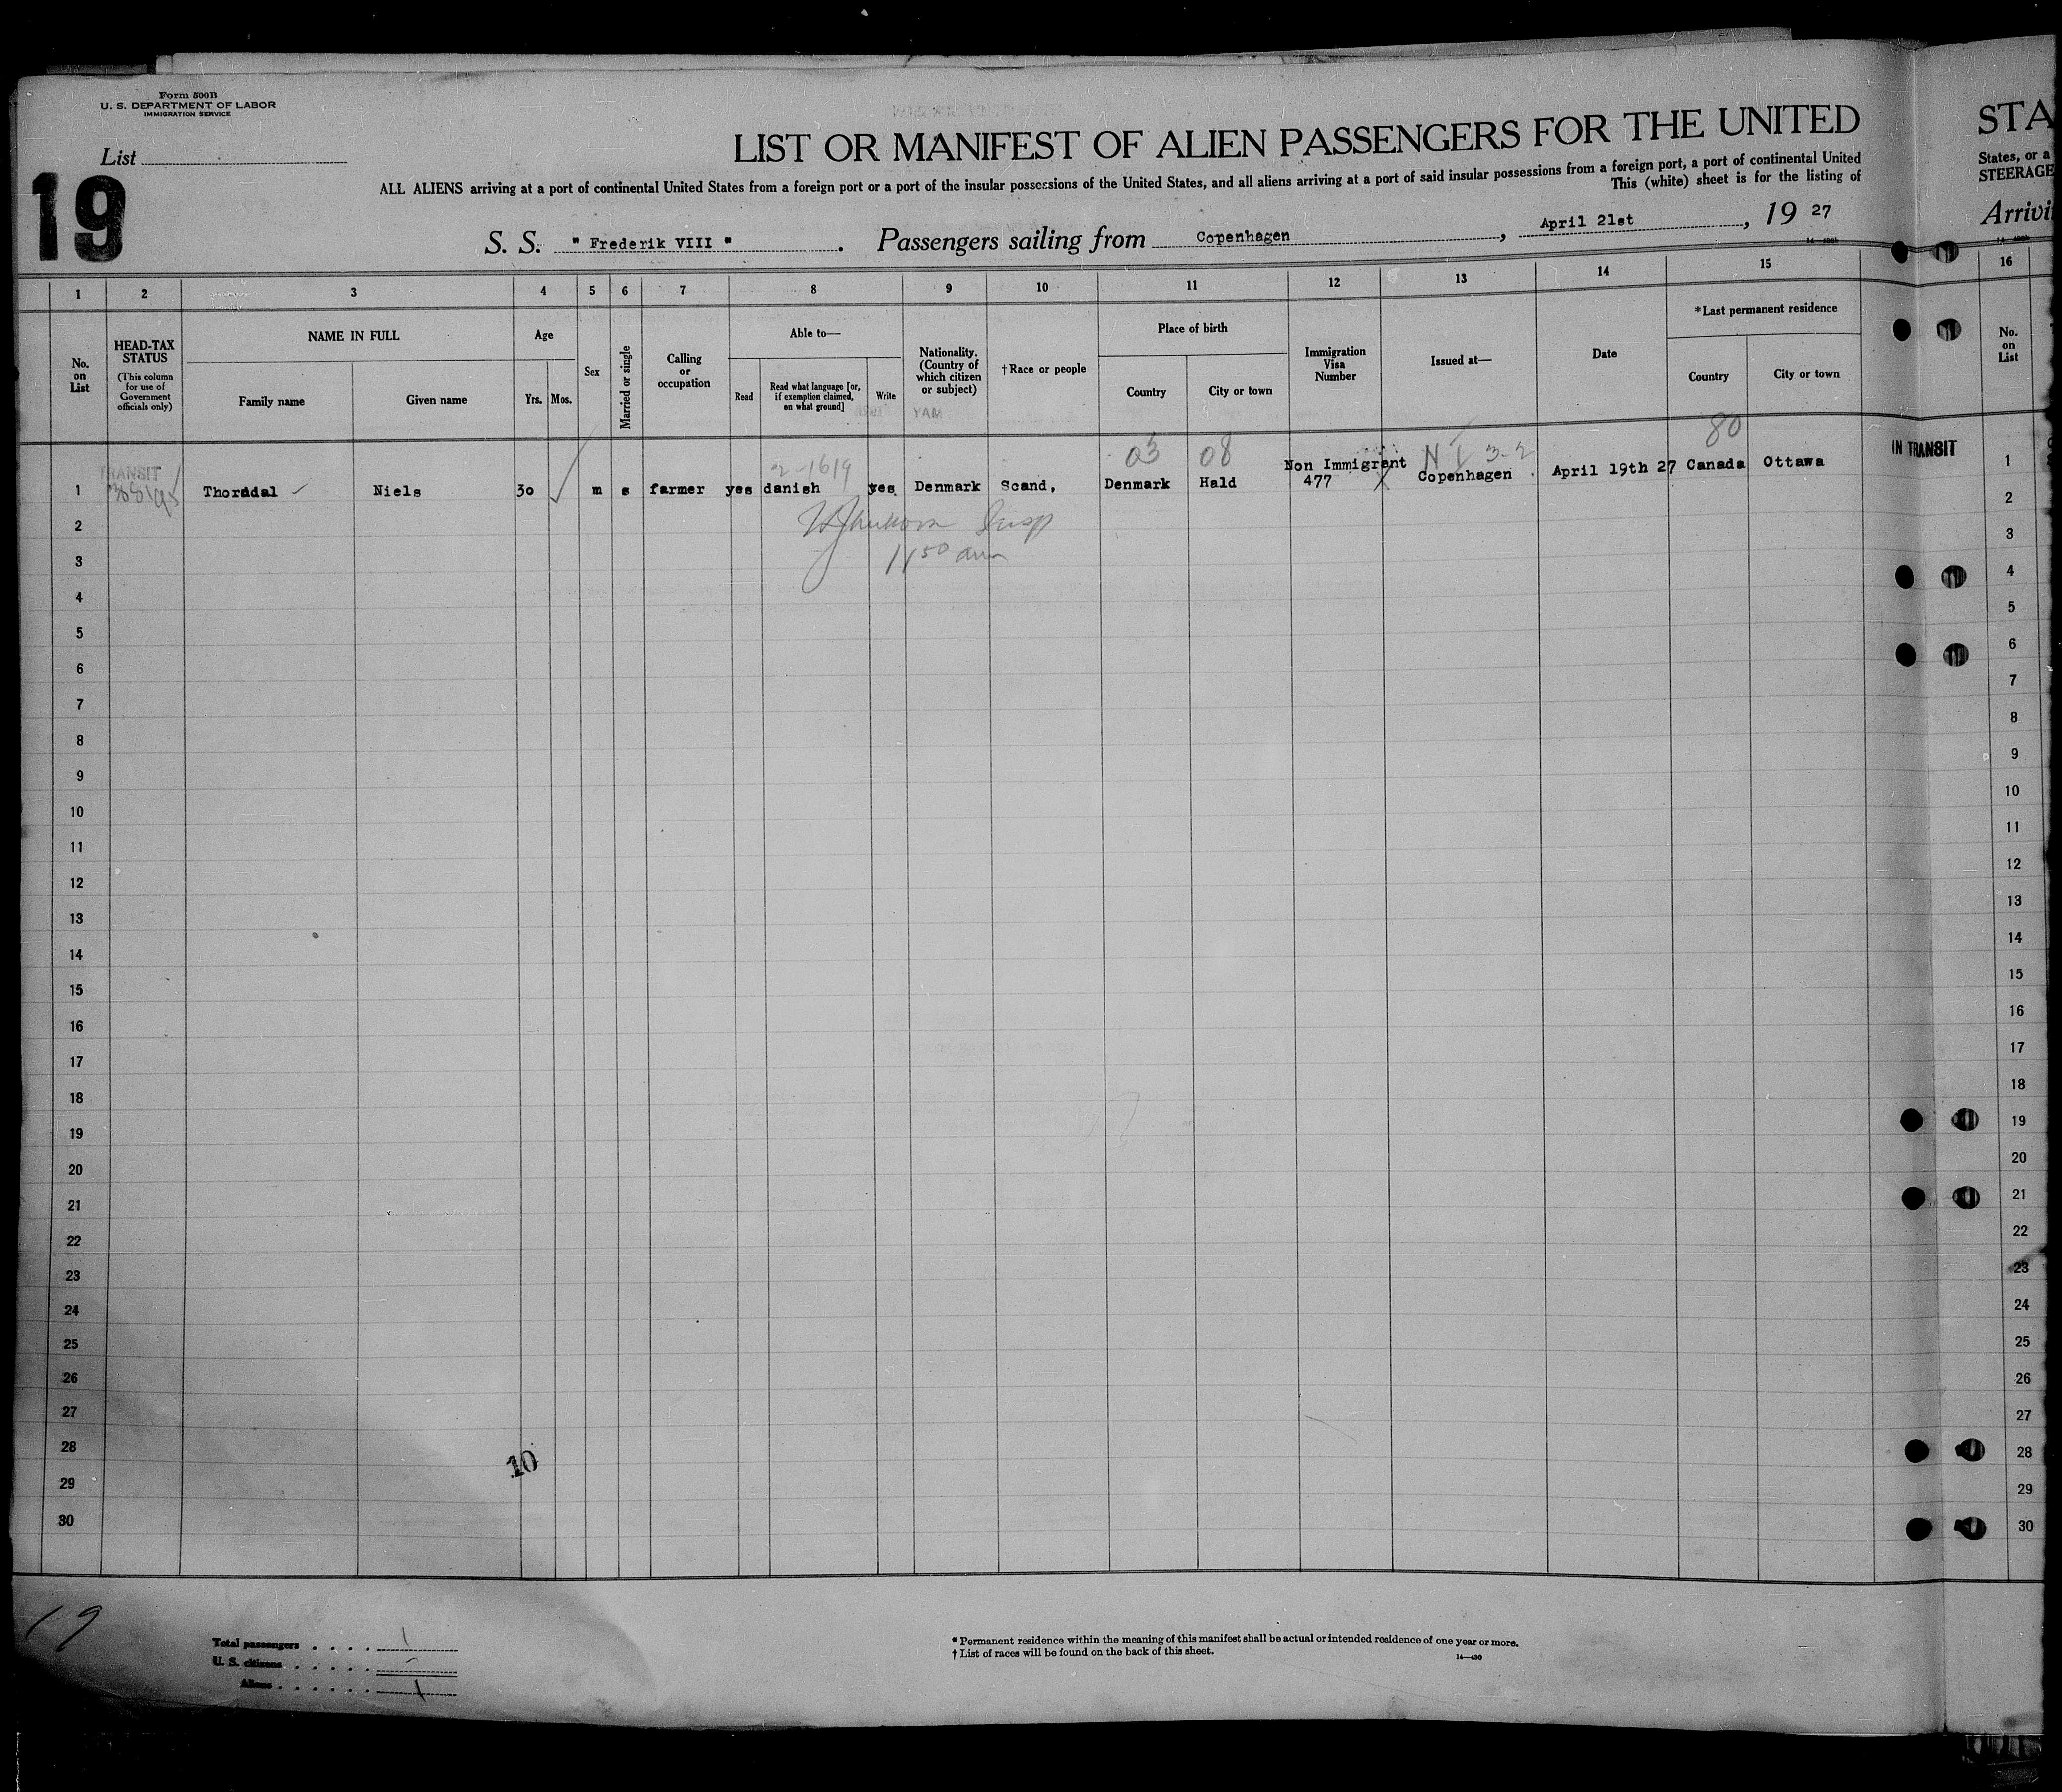 Form 500B
U. S. DEPARTMENT OF LABOR
IMMIGRATION SERVICE
List
19
LIST OR MANIFEST OF ALIEN PASSENGERS FOR THE UNITED
ALL ALIENS arriving at a port of continental United States from a foreign port or a port of the insular possessions of the United States, and all aliens arriving at a port of said insular possessions from a foreign port, a port of continental United
This (white) sheet is for the listing of
S. S. " Frederik VIII " . Passengers sailing from Copenhagen , April 21st , 19 27
STA
States, or a
STEERAGE
Arrivi
1 2 3 4 5 6 7 8 9 10 11 12 13 14 15 16
No. on List
HEAD-TAX STATUS
(This column for use of Government officials only)
NAME IN FULL
Family name Given name
Age
Yrs. Mos.
Sex
Married or single
Calling or occupation
Able to—
Read
Read what language [or, if exemption claimed, on what ground]
Write
Nationality. (Country of which citizen or subject)
†Race or people
Place of birth
Country City or town
Immigration Visa Number
Issued at—
Date
*Last permanent residence
Country City or town
No. on List
80
TRANSIT 2-1619 03 08 Non Immigrant N I 3-2 IN TRANSIT
1 Thorddal Niels 30 m s farmer yes danish yes Denmark Scand, Denmark Hald 477 Copenhagen April 19th 27 Canada Ottawa 1
2 Insp 2
3 1150 am 3
4 4
5 5
6 6
7 7
8 8
9 9
10 10
11 11
12 12
13 13
14 14
15 15
16 16
17 17
18 18
19 19
20 20
21 21
22 22
23 23
24 24
25 25
26 26
27 27
28 10 28
29 29
30 30
19
Total passengers . . . . 1
U. S. citizens . . . . . . -
Aliens . . . . . . 1
* Permanent residence within the meaning of this manifest shall be actual or intended residence of one year or more.
† List of races will be found on the back of this sheet.
14—430